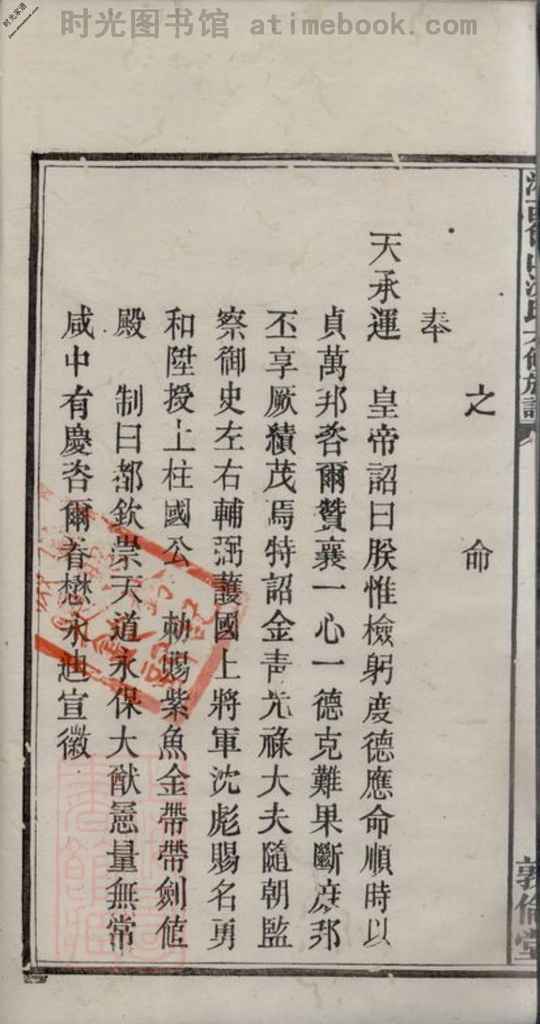 时光图书馆 - atimebook.com
之命
奉
天承運　皇帝詔曰朕惟檢躬度德應命順時以
貞萬邦咨爾贊襄一心一德克難果斷庶邦
丕享厥績茂焉特詔金靑光祿大夫隨朝監
察御史左右輔弼護國上將軍沈彪賜名勇
和陞授上柱國公　勅賜紫魚金帶帶劍値
殿　制曰都欽崇天道永保大猷憲量無常
咸中有慶咨爾眷懋永迪宣徽
敦倫堂